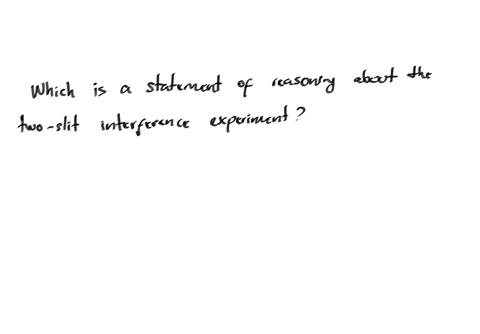 Which is a statement of reasoning about the
two-slit interference experiment?